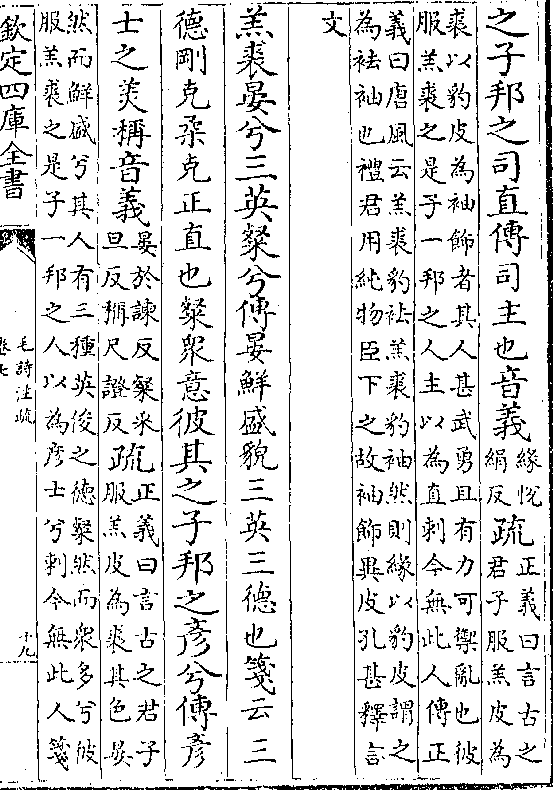 之子邦之司直傳司主也音義緣悅絹反疏正義曰言古之君子服羔皮為
裘以豹皮為袖飾者其人甚武勇且有力可禦亂也彼
服羔裘之是子一邦之人主以為直刺今無此人傳正
義曰唐風云羔裘豹袪羔裘豹袖然則緣以豹皮謂之
為袪袖也禮君用純物臣下之故袖飾異皮孔甚釋言
文
羔裘晏兮三英粲兮傳晏鮮盛貌三英三德也箋云三
德剛克柔克正直也粲衆意彼其之子邦之彥兮傳彥
士之美稱音義晏於諫反粲采旦反稱尺證反疏正義曰言古之君子服羔皮為裘其色晏
然而鮮盛兮其人有三種英俊之德粲然而衆多兮彼
服羔裘之是子一邦之人以為彥士兮刺今無此人箋
欽定四庫全書
毛詩注疏
卷七
十九